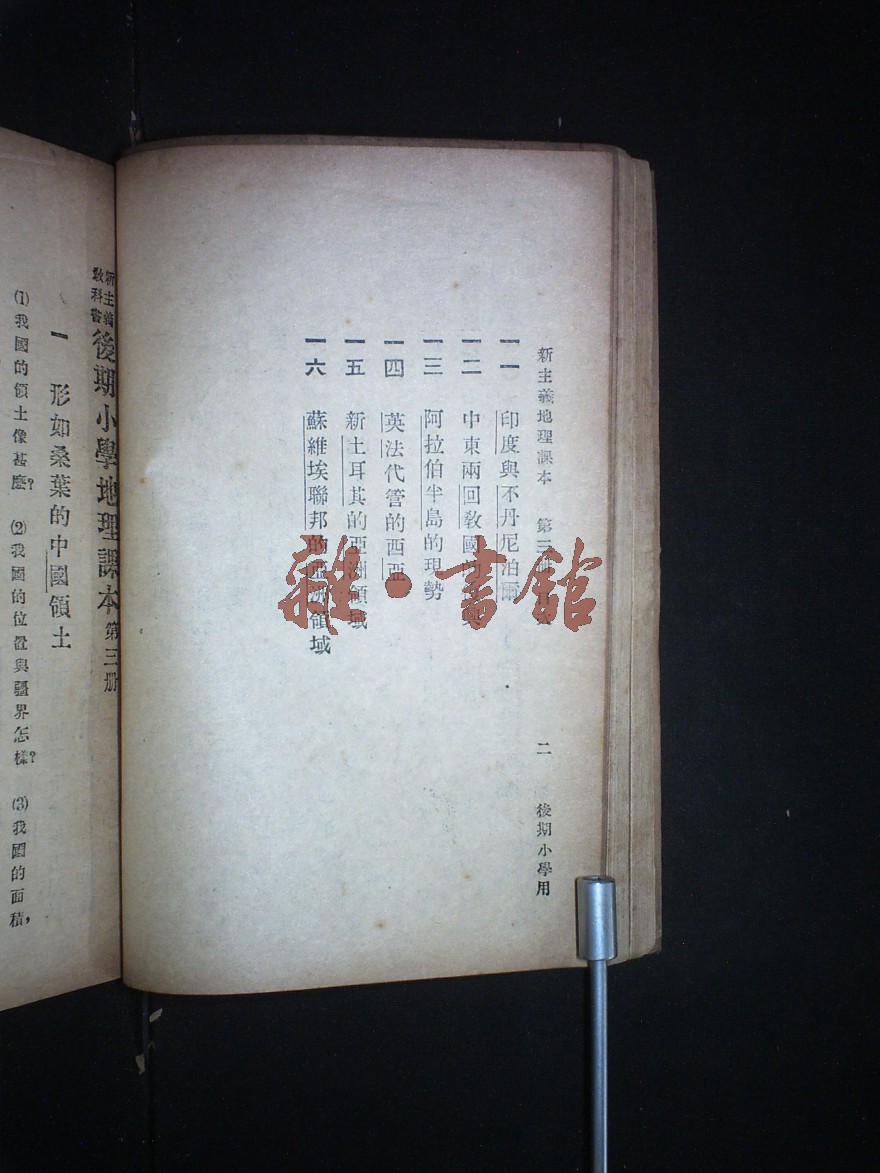 新主義地理課本 第三冊 二 後期小學用
一一 印度與不丹尼泊爾
一二 中東兩回教國
一三 阿拉伯半島的現勢
一四 英法代管的西亞
一五 新土耳其的亞洲領域
一六 蘇維埃聯邦的亞洲領域
新主義教科書 後期小學地理課本 第三册
一 形如桑葉的中國領土
(1)我國的領土像甚麼? (2)我國的位置與疆界怎樣? (3)我國的面積,
雜·書館